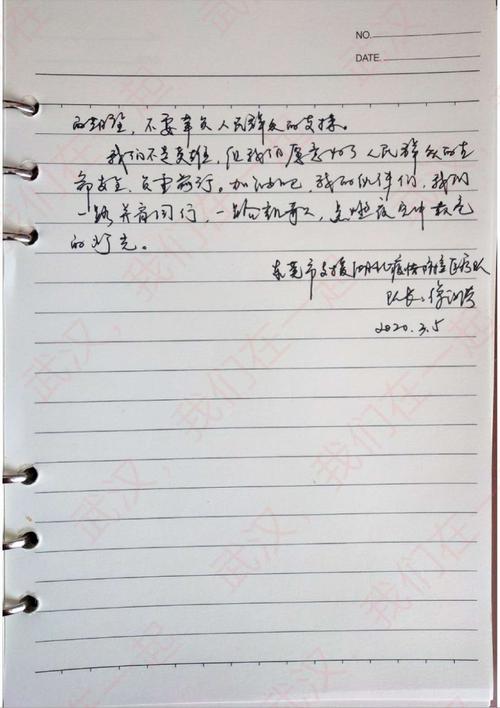 NO.
DATE.
的期望，不要辜负人民群众的支援。
我们不是英雄，但我们愿意为了人民群众的生
命安全，负重前行。加油吧，我的伙伴们，我们
一路并肩同行，一路高歌，点燃夜空中最亮
的灯光。
东莞市支援湖北疫情防控医疗队
队长：
2020.3.5
武汉，我们在一起
武汉，我们在一起
武汉，我们在一起